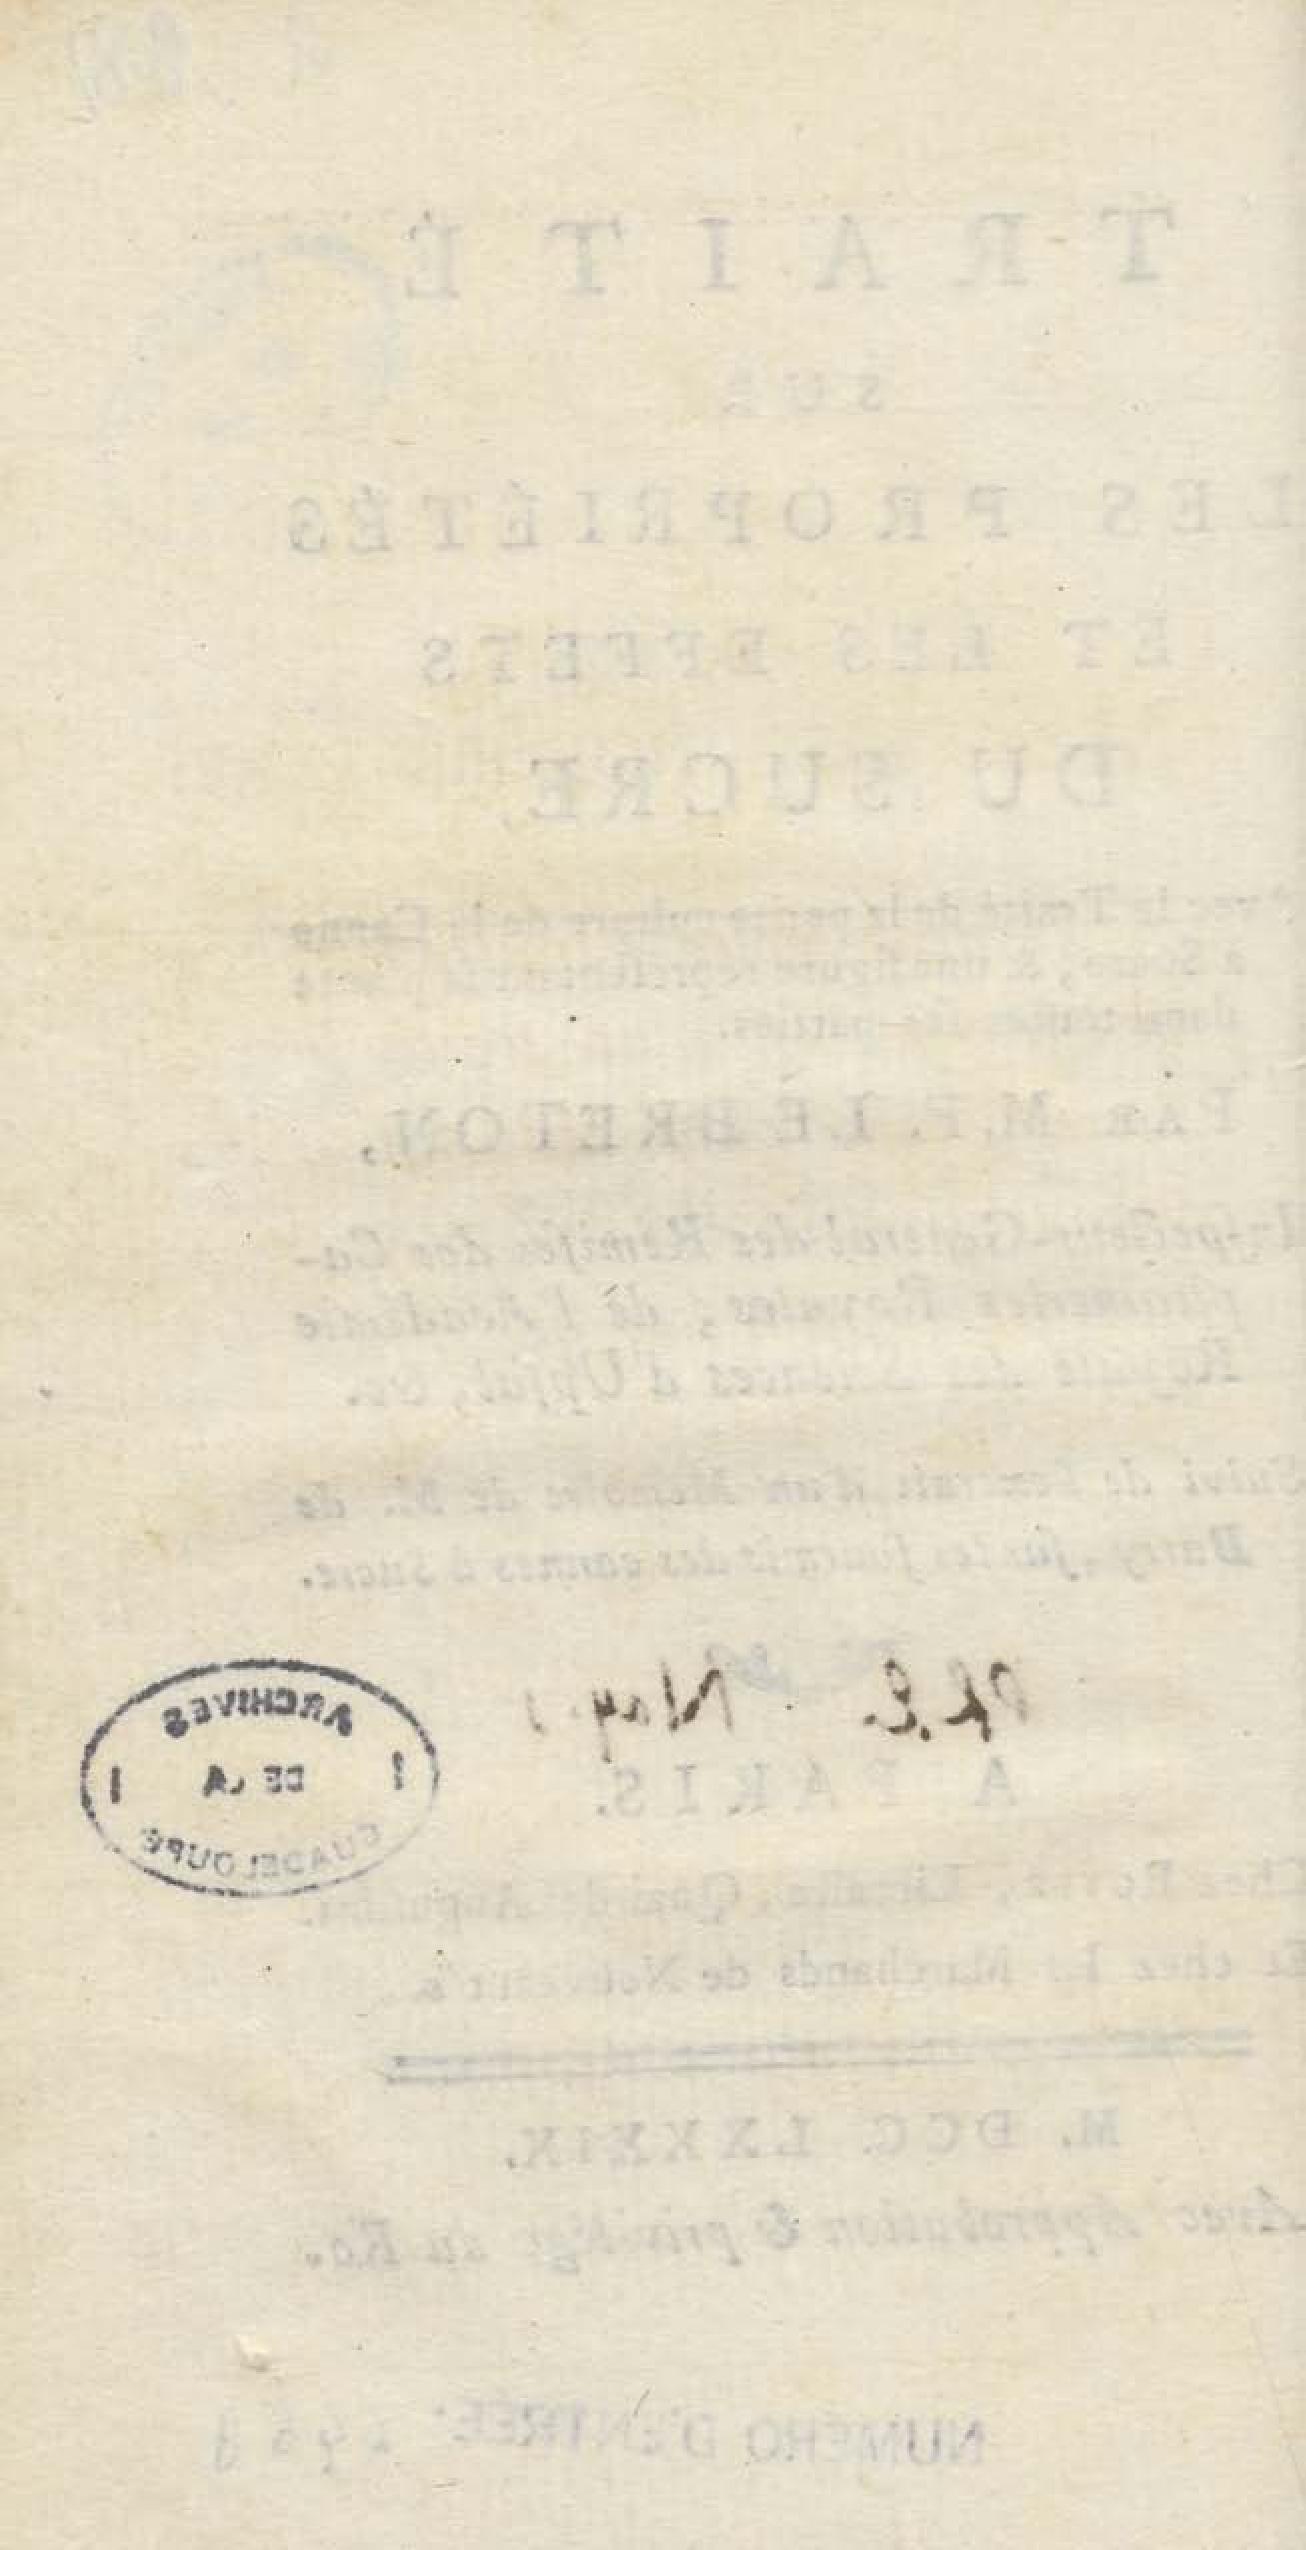 TRAITÉ
SUR
LES PROPRIÉTÉS
ET LES EFFETS
DU SUCRE,
avec le Traité de la petite culture de la Canne
à Sucre, & une figure représentant la
dans toutes ses parties.
PAR M. F. LE BRETON,
Inspecteur-Général des Remises des Ca-
pitaineries Royales ; de l'Académie
Royale des Sciences d'Upsal, &c.
Suivi de l'extrait d'un Mémoire de M. de
sur les fourmis des cannes à Sucre.
Nay
A PARIS.
ARCHIVES
DE LA
GUADELOUPE
Chez Libraire, Quai des Augustins.
Et chez les Marchands de Nouveautés.
M. DCC. LXXXIX.
Avec Approbation & privilége du Roi.
NUMÉRO D'ENTRÉE: